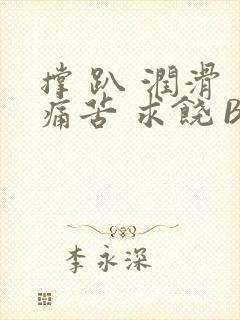 撑 趴 潤滑
痛苦 求饒 B
李永深